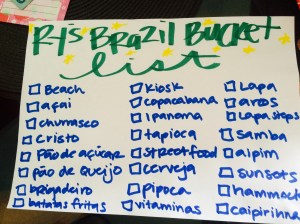 Rj's BRAZIL BUCKET
list
Beach
açaí
churrasco
Cristo
Pão de açúcar
pão de queijo
brigadeiro
batatas fritas
Kiosk
copacabana
Ipanama
tapioca
street food
cerveja
pipoca
vitaminas
Lapa
arcos
Lapa steps
samba
aipim
sunsets
hammock
caipirinha